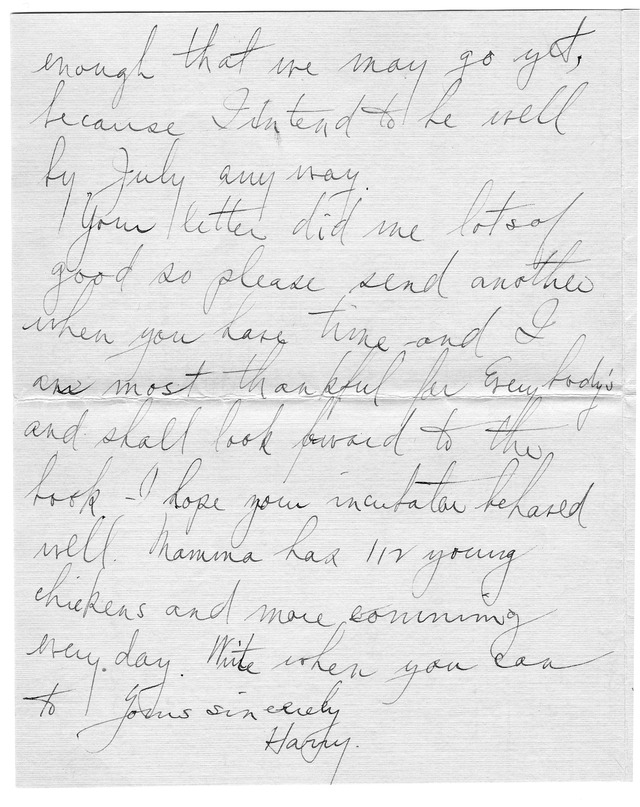 enough that we may go yet,
because I intend to be well
by July any way.
Your letter did me lots of
good so please send another
when you have time and I
am most thankful for Everybody's
and shall look forward to the
book - I hope your incubator behaved
well. Mamma has 112 young
chickens and more comming
every day. Write when you can
to Yours sincerely
Harry.